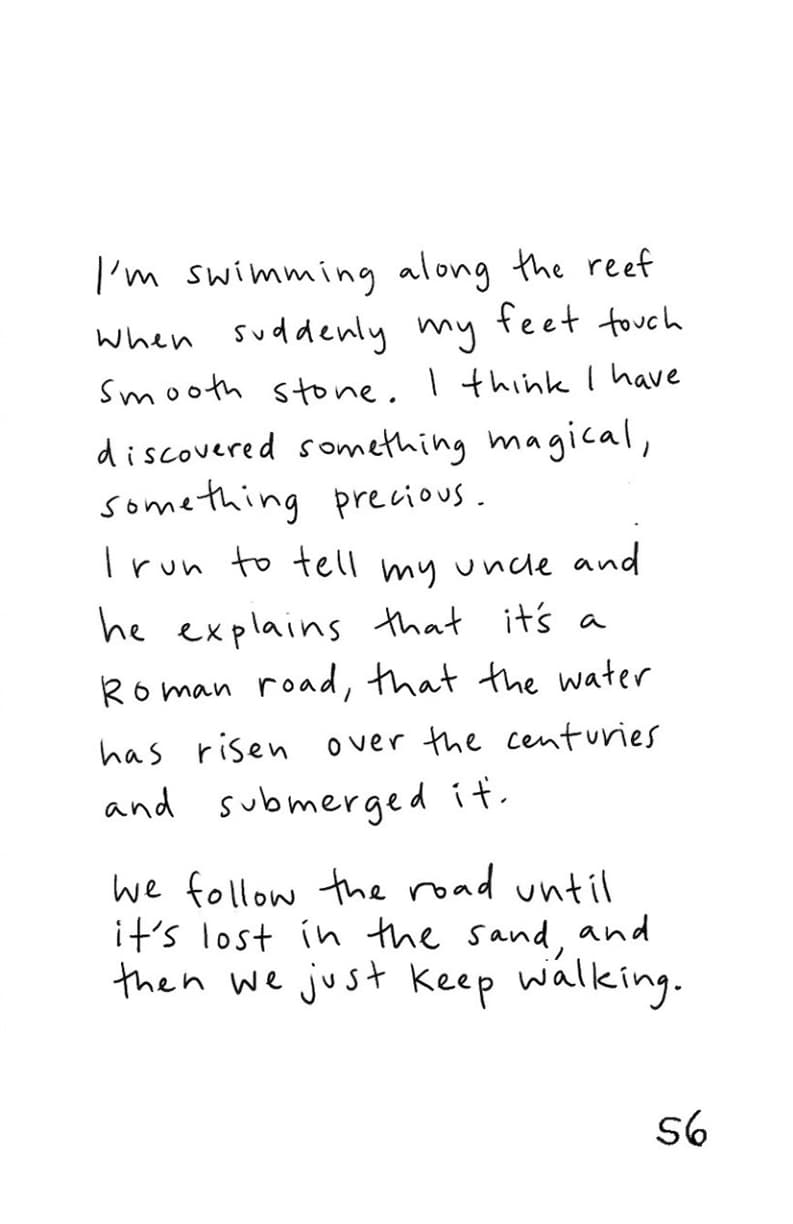 I'm swimming along the reef
when suddenly my feet touch
smooth stone. I think I have
discovered something magical,
something precious.
I run to tell my uncle and
he explains that it's a
Roman road, that the water
has risen over the centuries
and submerged it.
We follow the road until
it's lost in the sand, and
then we just keep walking.
56